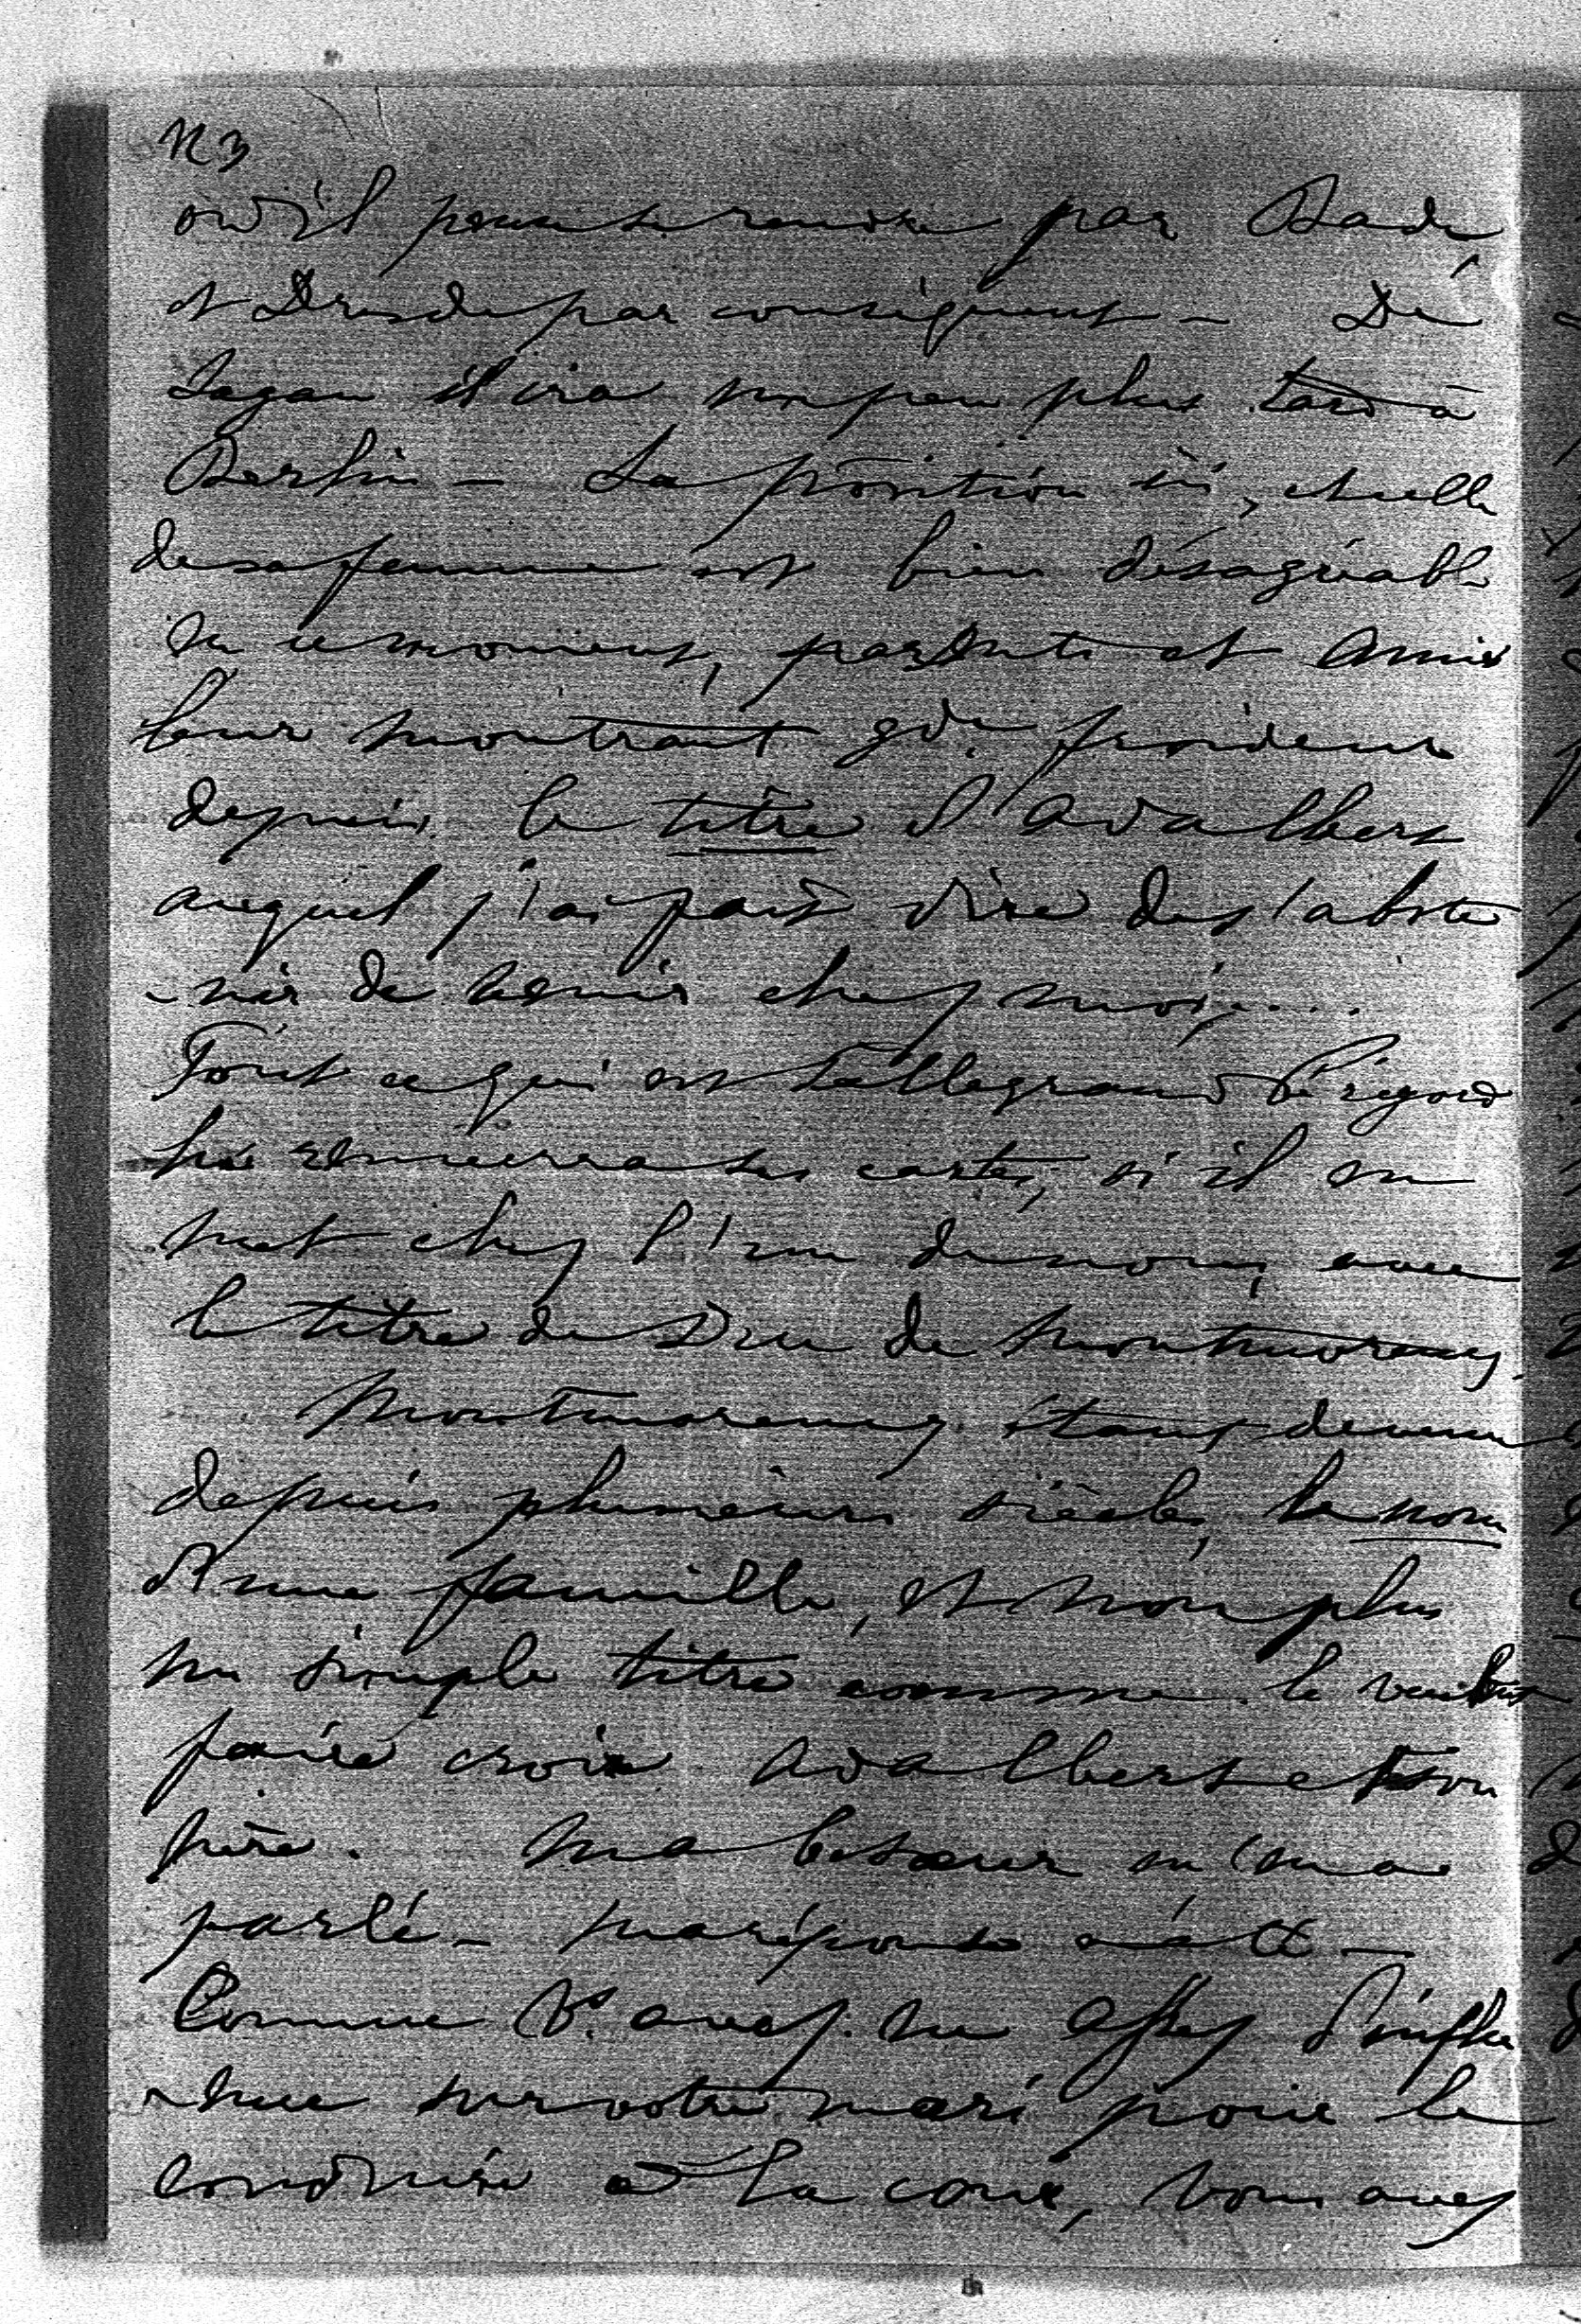 N 3
où il pense se rendre par Bade
et Dresde par conséquent — De
Sagan il ira un peu plus tard à
Berlin — La position ici, et celle
de sa femme est bien désagréable
en ce moment, parents et amis
leur montrant gde froideur
depuis le titre d'Adalbert
auquel j'ai fait dire de s'abste
-nir de venir chez moi....
Tout ce qui est Talleyrand Périgord
lui renverra ses cartes, si il en
met chez l'un de nous, avec
le titre de Duc de Montmorency.
Montmorency étant devenu
depuis plusieurs siècles, le nom
d'une famille, et non plus
un simple titre comme le veulent
faire croire Adalbert et son
père. Ma besoeur m'en a
parlé — ma réponse a été —
Comme Vs avez eu assez d'influ
-ence sur votre mari pour le
conduire à la cour, vous avez